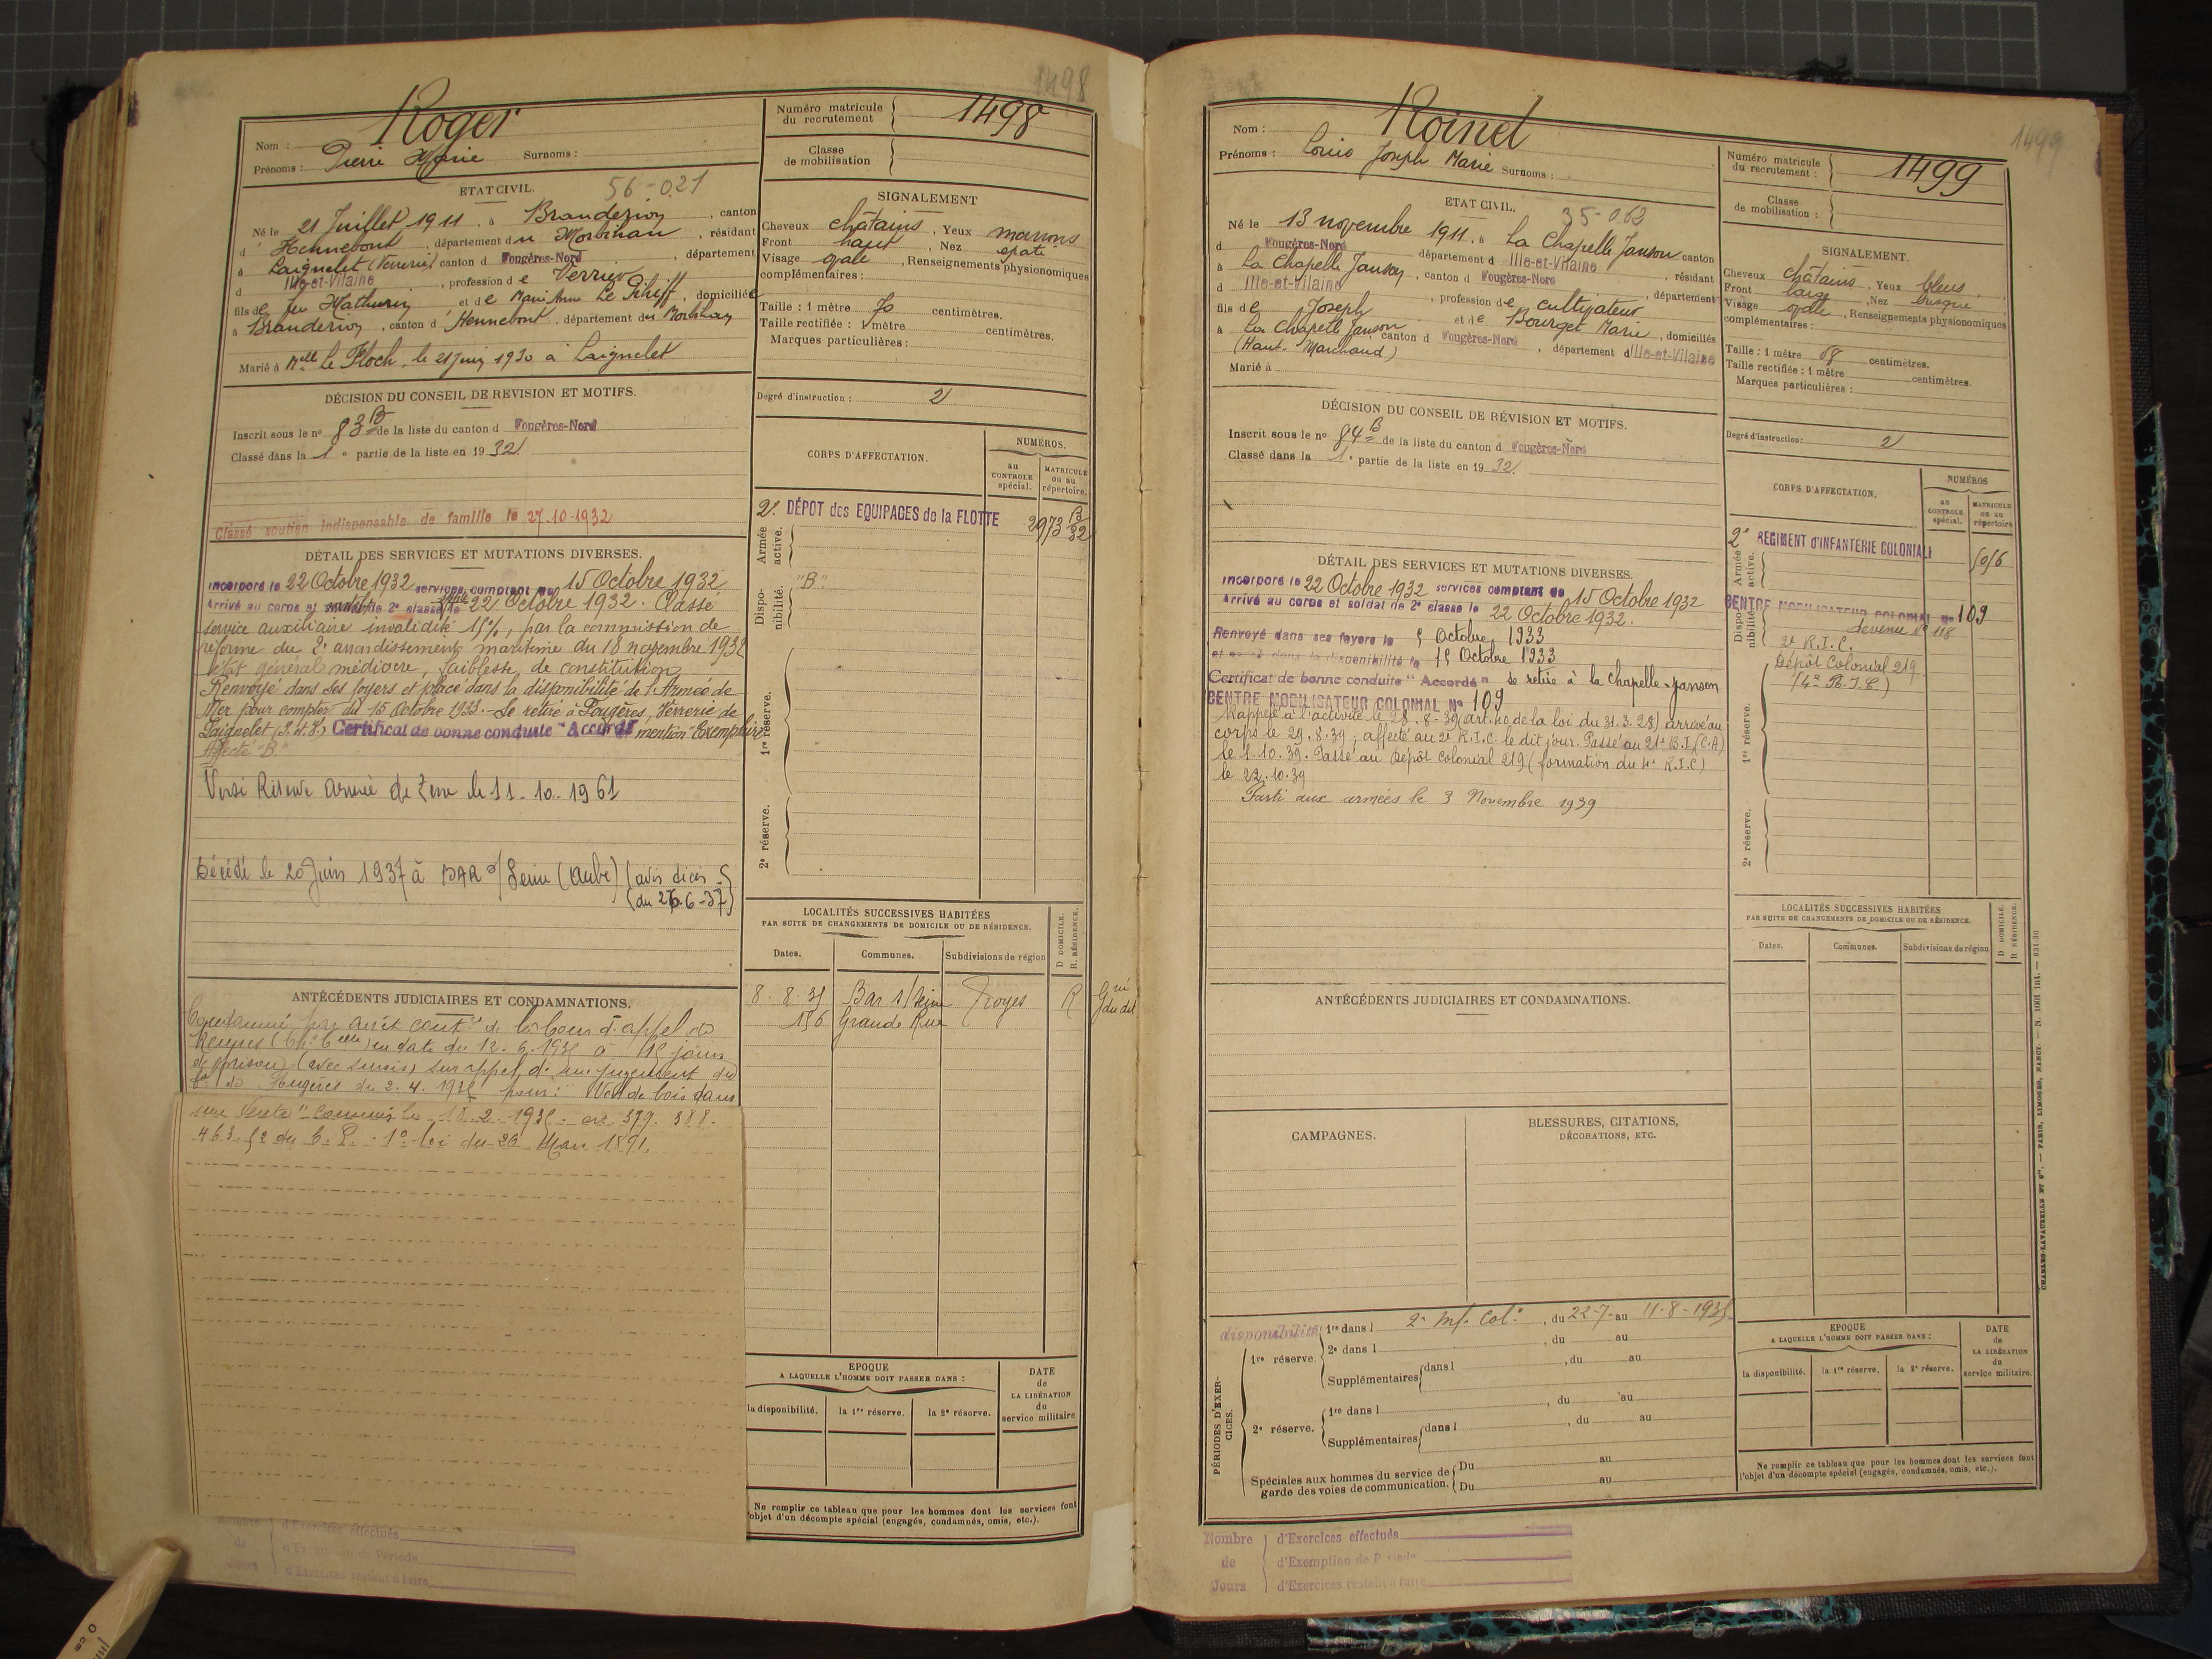 1498
Roger
Nom :
Prénoms : Pierre Marie Surnoms :
Numéro matricule du recrutement 1498
Classe de mobilisation
ETAT CIVIL.
56-021
Né le 21 Juillet 1911, à Branderion, canton
d'Hennebont, département du Morbihan, résidant
à Laignelet (Verrerie) canton d Fougères-Nord, département
d Ille-et-Vilaine, profession de Verrier
fils de feu Mathurin et de Marie Anne Le Pihiff, domiciliée
à Branderion, canton d'Hennebont, département du Morbihan
Marié à Melle Le Floch, le 21 Juin 1930 à Laignelet
SIGNALEMENT
Cheveux châtains, Yeux marrons
Front haut, Nez épaté
Visage ovale, Renseignements physionomiques
complémentaires :
Taille : 1 mètre 70 centimètres.
Taille rectifiée : 1 mètre centimètres.
Marques particulières :
Degré d'instruction : 2
DÉCISION DU CONSEIL DE REVISION ET MOTIFS.
Inscrit sous le no 83 B de la liste du canton d Fougères-Nord
Classé dans la 1e partie de la liste en 1932
Classé soutien indispensable de famille le 27-10-1932
DÉTAIL DES SERVICES ET MUTATIONS DIVERSES.
Incorporé le 22 Octobre 1932 services comptant du 15 Octobre 1932
Arrivé au corps et matelot de 2e classe le 22 Octobre 1932. Classé
service auxiliaire invalidité 15%, par la commission de
réforme du 2e arrondissement maritime du 18 novembre 1932
"état général médiocre, faiblesse de constitution
Renvoyé dans ses foyers et placé dans la disponibilité de l'Armée de
Mer pour compter du 15 Octobre 1933. Se retire à Fougères, Verrerie de
Laignelet (I. et V.) Certificat de bonne conduite "Accordé" mention "Exemplaire"
Affecté "B"
Versé Réserve Armée de Terre le 11-10-1961
Décédé le 20 Juin 1937 à BAR s/ Seine (Aube) (avis décès
(du 26-6-37)
CORPS D'AFFECTATION.
NUMÉROS.
au CONTROLE spécial.
MATRICULE ou au répertoire.
Armée active.
2e DÉPOT des EQUIPAGES de la FLOTTE 2973 B 32
Disponibilité.
"B"
1re réserve.
2e réserve.
LOCALITÉS SUCCESSIVES HABITÉES
PAR SUITE DE CHANGEMENTS DE DOMICILE OU DE RÉSIDENCE.
Dates. Communes. Subdivisions de région D DOMICILE. R. RÉSIDENCE.
8-8-35 Bar s/ Seine Troyes R
156 Grande Rue
ANTÉCÉDENTS JUDICIAIRES ET CONDAMNATIONS.
Condamné par arrêt contre de la Cour d'appel de
Rennes (Ch. Celle) en date du 12.6.1935 à 15 jours
de prison (avec sursis) sur appel d'un jugement du
de Fougères du 2.4.1935 pour : "Vol de bois dans
une Vente" commis le 18.2.1935. art. 379. 388.
463 § 2 du C. P. 1o loi du 26 Mars 1891.
EPOQUE
A LAQUELLE L'HOMME DOIT PASSER DANS :
la disponibilité. la 1re réserve. la 2e réserve.
DATE de LA LIBÉRATION du service militaire.
Ne remplir ce tableau que pour les hommes dont les services font
l'objet d'un décompte spécial (engagés, condamnés, omis, etc.).
Nombre de Jours
d'Exercices effectués
d'Exemption de Période
d'Exercices restant à faire
1499
Roinel
Nom :
Prénoms : Louis Joseph Marie Surnoms :
Numéro matricule du recrutement : 1499
Classe de mobilisation :
ETAT CIVIL.
35-062
Né le 13 novembre 1911, à La Chapelle Janson canton
d Fougères-Nord département d Ille-et-Vilaine, résidant
à La Chapelle Janson, canton d Fougères-Nord, département
d Ille-et-Vilaine, profession de cultivateur
fils de Joseph et de Bourget Marie, domiciliés
à La Chapelle Janson canton d Fougères-Nord, département d Ille-et-Vilaine
(Haut-Marchand)
Marié à
SIGNALEMENT.
Cheveux châtains, Yeux bleus
Front large, Nez busqué
Visage ovale, Renseignements physionomiques
complémentaires :
Taille : 1 mètre 68 centimètres.
Taille rectifiée : 1 mètre centimètres.
Marques particulières :
Degré d'instruction : 2
DÉCISION DU CONSEIL DE RÉVISION ET MOTIFS.
Inscrit sous le no 84 B de la liste du canton d Fougères-Nord
Classé dans la 1e partie de la liste en 1932
DÉTAIL DES SERVICES ET MUTATIONS DIVERSES.
Incorporé le 22 Octobre 1932 services comptant de 15 Octobre 1932
Arrivé au corps et soldat de 2e classe le 22 Octobre 1932.
Renvoyé dans ses foyers le 5 Octobre 1933
et passé dans la disponibilité le 15 Octobre 1933
Certificat de bonne conduite "Accordé" se retire à la Chapelle-Janson
CENTRE MOBILISATEUR COLONIAL No 109
Rappelé à l'activité le 28-8-39 (art. 40 de la loi du 31.3.28) arrivé au
corps le 29.8.39 ; affecté au 2e R.I.C. le dit jour. Passé au 21e B.I. (C.A)
le 1.10.39. Passé au Dépôt Colonial 219 (formation du 4e R.I.C)
le 22.10.39
Parti aux armées le 3 Novembre 1939
CORPS D'AFFECTATION.
NUMÉROS
au CONTROLE spécial.
MATRICULE ou au répertoire
Armée active.
2e REGIMENT d'INFANTERIE COLONIALE 5056
Disponibilité.
CENTRE MOBILISATEUR COLONIAL No 109
devenu No 118
2e R.I.C.
Dépôt Colonial 219
(4e R.I.C.)
1re réserve.
2e réserve.
LOCALITÉS SUCCESSIVES HABITÉES
PAR SUITE DE CHANGEMENTS DE DOMICILE OU DE RÉSIDENCE.
Dates. Communes. Subdivisions de région D DOMICILE. R RÉSIDENCE.
ANTÉCÉDENTS JUDICIAIRES ET CONDAMNATIONS.
CAMPAGNES.
BLESSURES, CITATIONS,
DÉCORATIONS, ETC.
PÉRIODES D'EXERCICES.
disponibilité
1re réserve.
1re dans l 2e Inf. Col., du 22-7- au 11-8-1935
2e dans l , du au
Supplémentaires dans l , du au
2e réserve.
1re dans l , du au
Supplémentaires dans l , du au
Spéciales aux hommes du service de garde des voies de communication. Du au
Du au
EPOQUE
A LAQUELLE L'HOMME DOIT PASSER DANS :
la disponibilité. la 1re réserve. la 2e réserve.
DATE de LA LIBÉRATION du service militaire.
Ne remplir ce tableau que pour les hommes dont les services font
l'objet d'un décompte spécial (engagés, condamnés, omis, etc.).
Nombre de Jours
d'Exercices effectués
d'Exemption de Période
d'Exercices restant à faire
CHARLES-LAVAUZELLE ET Cie. — PARIS, LIMOGES, NANCY. — N. 1001 Int. — 831-30
0 cm